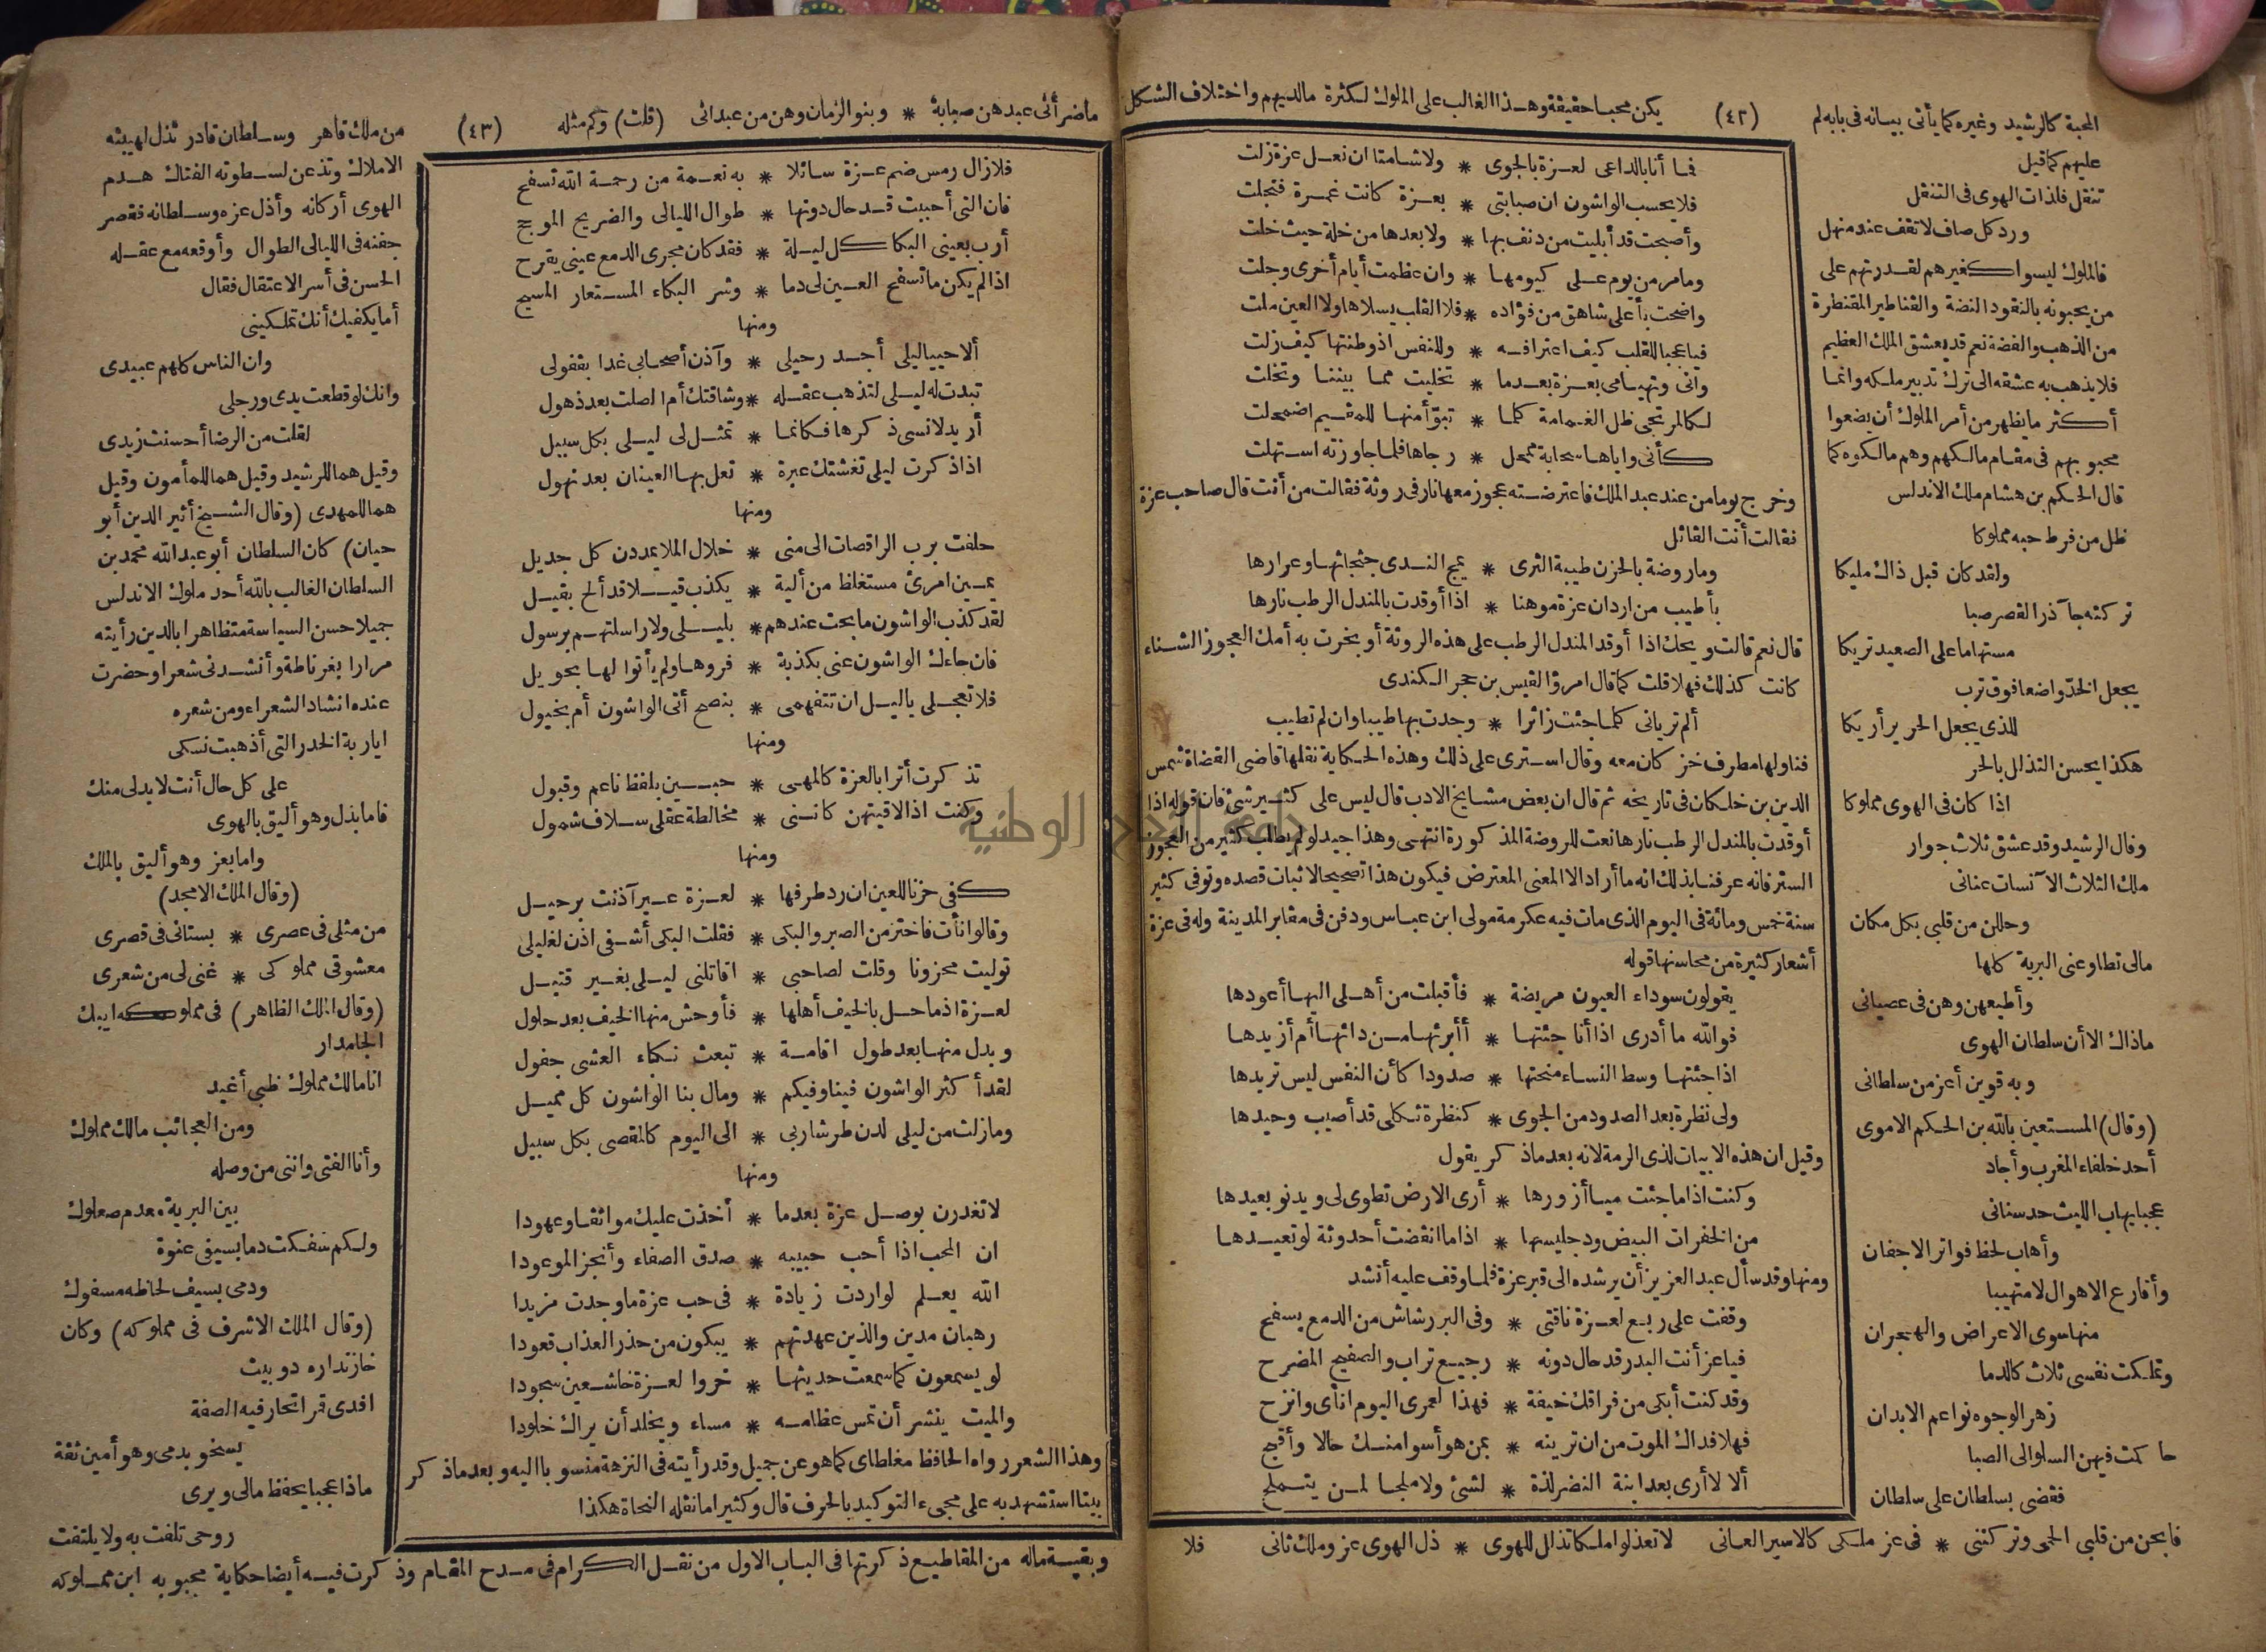 المحبة كالرشيد وغيره كما يأتى بيانه فى بابه لم (٤٢) يكن محبا حقيقة وهذا الغالب على الملوك لكثرة مالديهم واختلاف الشكل
عليهم كما قيل
تنقل فلذات الهوى فى التنقل
ورد كل صاف لا تقف عند منهل
فالملوك ليسوا كغيرهم لقدرتهم على
من يحبونه بالنقود النضة والقناطير المقنطرة
من الذهب والفضة نعم قد يعشق الملك العظيم
فلا يذهب به عشقه الى ترك تدبير ملكه وانما
أكثر ما يظهر من أمر الملوك أن يضعوا
محبوبهم فى مقام مالكهم وهم مالكوه كما
قال الحكم بن هشام ملك الاندلس
ظل من فرط حبه مملوكا
ولقد كان قبل ذاك مليكا
تركته جآ ذر القصر صبا
مستهاما على الصعيد تريكا
يجعل الخد واضعا فوق ترب
للذى يجعل الحرير أريكا
هكذا يحسن التذلل بالحر
اذا كان فى الهوى مملوكا
وقال الرشيد وقد عشق ثلاث جوار
ملك الثلاث الآ نسات عنانى
وحللن من قلبى بكل مكان
مالى تطاوعنى البرية كلها
وأطيعهن وهن فى عصيانى
ماذاك الا أن سلطان الهوى
وبه قوين أعز من سلطانى
(وقال) المستعين بالله بن الحكم الاموى
أحد خلفاء المغرب وأجاد
عجبا يهاب الليث حد سنانى
وأهاب لحظ فواتر الاجفان
وأقارع الاهوال لا متهيبا
منها سوى الاعراض والهجران
وتملكت نفسى ثلاث كالدما
زهر الوجوه نواعم الابدان
حاكمت فيهن السلو الى الصبا
فقضى بسلطان على سلطان
فما أنا بالداعى لعزة بالجوى * ولا شامتا ان نعل عزة زلت
فلا يحسب الواشون ان صبابتى * بعزة كانت غمرة فتجلت
وأصبحت قد أبليت من دنف بها * ولا بعدها من خلة حيث خلت
وما مر من يوم على كيومها * وان عظمت أيام أخرى وجلت
واضحت بأعلى شاهق من فؤاده * فلا القلب يسلاها ولا العين ملت
فيا عجبا للقلب كيف اعترافه * وللنفس اذ وطنتها كيف زلت
وانى وتهيامى بعزة بعدما * تخليت مما بيننا وتخلت
لكالمرتجى ظل الغمامة كلما * تبوأ منها للمقيم اضمحلت
كأنى واياها سحابة ممحل * رجاها فلما جاوزته استهلت
وخرج يوما من عند عبد الملك فاعترضته عجوز معها نار فى روثة فقالت من أنت قال صاحب عزة
فقالت أنت القائل
وما روضة بالحزن طيبة الثرى * يمج الندى جثجاثها وعرارها
بأطيب من اردان عزة موهنا * اذا أوقدت بالمندل الرطب نارها
قال نعم قالت ويحك اذا أوقد المندل الرطب على هذه الروثة أو بخرت به أمك العجوز الشناء
كانت كذلك فهلا قلت كما قال امرؤ القيس بن حجر الكندى
ألم تريانى كلما جئت زائرا * وجدت بها طيبا وان لم تطيب
فناولها مطرف خز كان معه وقال استرى على ذلك وهذه الحكاية نقلها قاضى القضاة شمس
الدين بن خلكان فى تاريخه ثم قال ان بعض مشايخ الادب قال ليس على كثير شئ فان قوله اذا
أوقدت بالمندل الرطب نارها نعت للروضة المذكورة انتهى وهذا جيد لو لم يطلب كثير من العجوز
الستر فانه عرفنا بذلك انه ما أراد الا المعنى المعترض فيكون هذا تصحيحا لا ثبات قصده وتوفى كثير
سنة خمس ومائة فى اليوم الذى مات فيه عكرمة مولى ابن عباس ودفن فى مقابر المدينة وله فى عزة
أشعار كثيرة من محاسنها قوله
يقولون سوداء العيون مريضة * فأقبلت من أهلى اليها أعودها
فوالله ما أدرى اذا أنا جئتها * أأبرئها من دائها أم أزيدها
اذا جئتها وسط النساء منحتها * صدودا كأن النفس ليس تريدها
ولى نظرة بعد الصدود من الجوى * كنظرة ثكلى قد أصيب وحيدها
وقيل ان هذه الابيات لذى الرمة لانه بعد ماذكر يقول
وكنت اذا ما جئت ميا أزورها * أرى الارض تطوى لى ويدنو بعيدها
من الخفرات البيض ود جليسها * اذا ما انقضت أحدوثة لو تعيدها
ومنها وقد سأل عبد العزيز أن يرشده الى قبر عزة فلما وقف عليه أنشد
وقفت على ربع لعزة ناقتى * وفى البر رشاش من الدمع يسفح
فيا عز أنت البدر قد حال دونه * رجيع تراب والصفيح المضرح
وقد كنت أبكى من فراقك خيفة * فهذا لعمرى اليوم انأى وانزح
فهلا فداك الموت من ان ترينه * بمن هو أسوا منك حالا وأقبح
ألا لا أرى بعد ابنة النضر لذة * لشئ ولا ملجا لمن يتملح
فابحن من قلبى الحمى وتركننى * فى عز ملكى كالاسير العانى لا تعذلوا ملكا تذلل للهوى * ذل الهوى عز وملك ثانى فلا
ما ضر أنى عبدهن صبابة * وبنو الزمان وهن من عبدانى (قلت) وكم مثله (٤٣) من ملك قاهر وسلطان قادر تذل لهيبته
فلا زال رمس ضم عزة سائلا * به نعمة من رحمة الله تسفح
فان التى أحببت قد حال دونها * طوال الليالى والضريح الموجح
أرب بعينى البكا كل ليلة * فقد كان مجرى الدمع عينى يقرح
اذا لم يكن ما تسفح العين لى دما * وشر البكاء المستعار المسيح
ومنها
ألا حييا ليلى أجد رحيلى * وآذن أصحابى غدا بقفولى
تبدت له ليلى لتذهب عقله * وشاقتك أم الصلت بعد ذهول
أريد لانسى ذكرها فكانما * تمثل لى ليلى بكل سبيل
اذا ذكرت ليلى تغشتك عبرة * تعل بها العينان بعد نهول
ومنها
حلفت برب الراقصات الى منى * خلال الملا يمددن كل جديل
يمين امرئ مستغلظ من ألية * يكذب قيلا قد ألح بقيل
لقد كذب الواشون ما بحت عندهم * بليلى ولا راسلتهم برسول
فان جاءك الواشون عنى بكذبة * فروها ولم يأتوا لها بحويل
فلا تعجلى ياليل ان تتفهمى * بنصح أتى الواشون أم بخبول
ومنها
تذكرت أترابا لعزة كالمهى * حبين بلفظ ناعم وقبول
وكنت اذا لاقيتهن كاننى * مخالطة عقلى سلاف شمول
ومنها
كفى حزنا للعين ان رد طرفها * لعزة عير آذنت برحيل
وقالوا نأت فاختر من الصبر والبكى * فقلت البكى أشفى اذن لغليلى
توليت محزونا وقلت لصاحبى * اقاتلتى ليلى بغير قتيل
لعزة اذ ما حل بالخيف أهلها * فأوحش منها الخيف بعد حلول
وبدل منها بعد طول اقامة * تبعث نكباء العشى جفول
لقد أكثر الواشون فينا وفيكم * ومال بنا الواشون كل مميل
وما زلت من ليلى لدن طر شاربى * الى اليوم كالمقصى بكل سبيل
ومنها
لا تغدرن بوصل عزة بعدما * أخذت عليك مواثقا وعهودا
ان المحب اذا أحب حبيبه * صدق الصفاء وأنجز الموعودا
الله يعلم لو اردت زيادة * فى حب عزة ما وجدت مزيدا
رهبان مدين والذين عهدتهم * يبكون من حذر العذاب قعودا
لو يسمعون كما سمعت حديثها * خروا لعزة خاشعين سجودا
والميت ينشر أن تمس عظامه * مساء ويخلد أن يراك خلودا
وهذا الشعر رواه الحافظ مغلطاى كما هو عن جميل وقد رأيته فى النزهة منسوبا اليه وبعد ماذكر
بيتا استشهد به على مجىء التوكيد بالحرف قال وكثيرا ما نقله النحاة هكذا
الاملاك وتذعن لسطوته الفتاك هدم
الهوى أركانه وأذل عزه وسلطانه فقصر
جفنه فى الليالى الطوال وأوقعه مع عقله
الحسن فى أسر الاعتقال فقال
أما يكفيك أنك تملكينى
وان الناس كلهم عبيدى
وانك لو قطعت يدى ورجلى
لقلت من الرضا أحسنت زيدى
وقيل هما للرشيد وقيل هما للمأمون وقيل
هما للمهدى (وقال الشيخ أثير الدين أبو
حيان) كان السلطان أبو عبد الله محمد بن
السلطان الغالب بالله أحد ملوك الاندلس
جميلا حسن السياسة متظاهرا بالدين رأيته
مرارا بغرناطة وأنشدنى شعرا وحضرت
عنده انشاد الشعراء ومن شعره
ايا ربة الخدر التى أذهبت نسكى
على كل حال أنت لا بد لى منك
فاما بذل وهو أليق بالهوى
واما بعز وهو أليق بالملك
(وقال الملك الامجد)
من مثلى فى عصرى * بستانى فى قصرى
معشوقى مملوكى * غنى لى من شعرى
(وقال الملك الظاهر) فى مملوكه ايبك
الجامدار
انا مالك مملوك ظبى أغيد
ومن العجائب مالك مملوك
وأنا الفتى واننى من وصله
بين البرية معدم صعلوك
ولكم سفكت دما بسيفى عنوة
ودمى بسيف لحاظه مسفوك
(وقال الملك الاشرف فى مملوكه) وكان
خازنداره دوبيت
افدى قمرا تحار فيه الصفة
يسخو بدمى وهو أمين ثقة
ماذا عجبا يحفظ مالى ويرى
روحى تلفت به ولا يلتفت
وبقية ماله من المقاطيع ذكرتها فى الباب الاول من نقل الكرام فى مدح المقام وذكرت فيه أيضا حكاية محبوبه ابن مملوكه